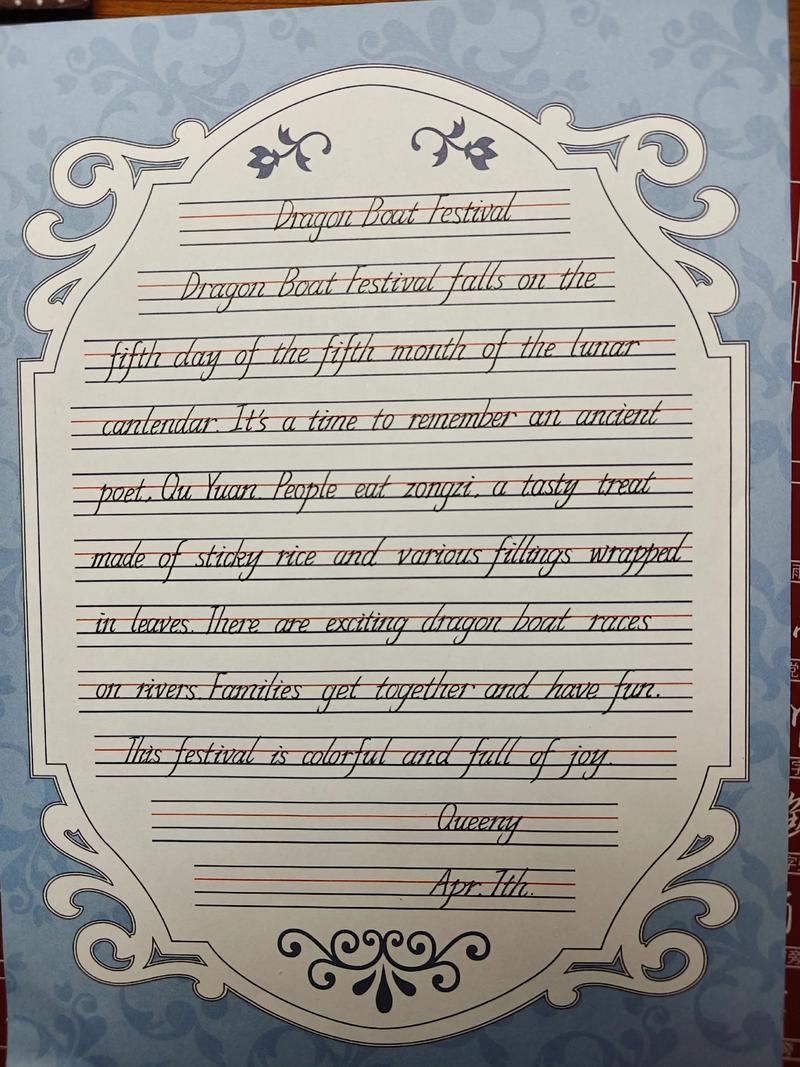 Dragon Boat Festival
Dragon Boat Festival falls on the
fifth day of the fifth month of the lunar
canlendar. It's a time to remember an ancient
poet, Qu Yuan. People eat zongzi, a tasty treat
made of sticky rice and various fillings wrapped
in leaves. There are exciting dragon boat races
on rivers. Families get together and have fun.
This festival is colorful and full of joy.
Queeny
Apr. 7th.